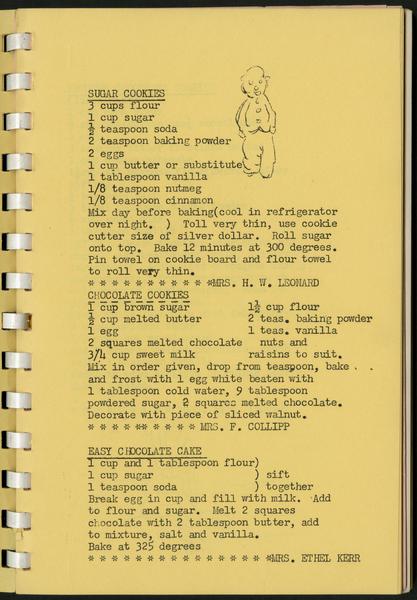 SUGAR COOKIES
3 cups flour
1 cup sugar
½ teaspoon soda
2 teaspoon baking powder
2 eggs
1 cup butter or substitute
1 tablespoon vanilla
1/8 teaspoon nutmeg
1/8 teaspoon cinnamon
Mix day before baking(cool in refrigerator
over night. ) Toll very thin, use cookie
cutter size of silver dollar. Roll sugar
onto top. Bake 12 minutes at 300 degrees.
Pin towel on cookie board and flour towel
to roll very thin.
* * * * * * * * * * *MRS. H. W. LEONARD
CHOCOLATE COOKIES
1 cup brown sugar 1½ cup flour
½ cup melted butter 2 teas. baking powder
1 egg 1 teas. vanilla
2 squares melted chocolate nuts and
3/4 cup sweet milk raisins to suit.
Mix in order given, drop from teaspoon, bake . .
and frost with 1 egg white beaten with
1 tablespoon cold water, 9 tablespoon
powdered sugar, 2 squares melted chocolate.
Decorate with piece of sliced walnut.
* * * * ** * * * * * MRS. F. COLLIPP
EASY CHOCOLATE CAKE
1 cup and 1 tablespoon flour)
1 cup sugar ) sift
1 teaspoon soda ) together
Break egg in cup and fill with milk. Add
to flour and sugar. Melt 2 squares
chocolate with 2 tablespoon butter, add
to mixture, salt and vanilla.
Bake at 325 degrees
* * * * * * * * * * * * * * * *MRS. ETHEL KERR